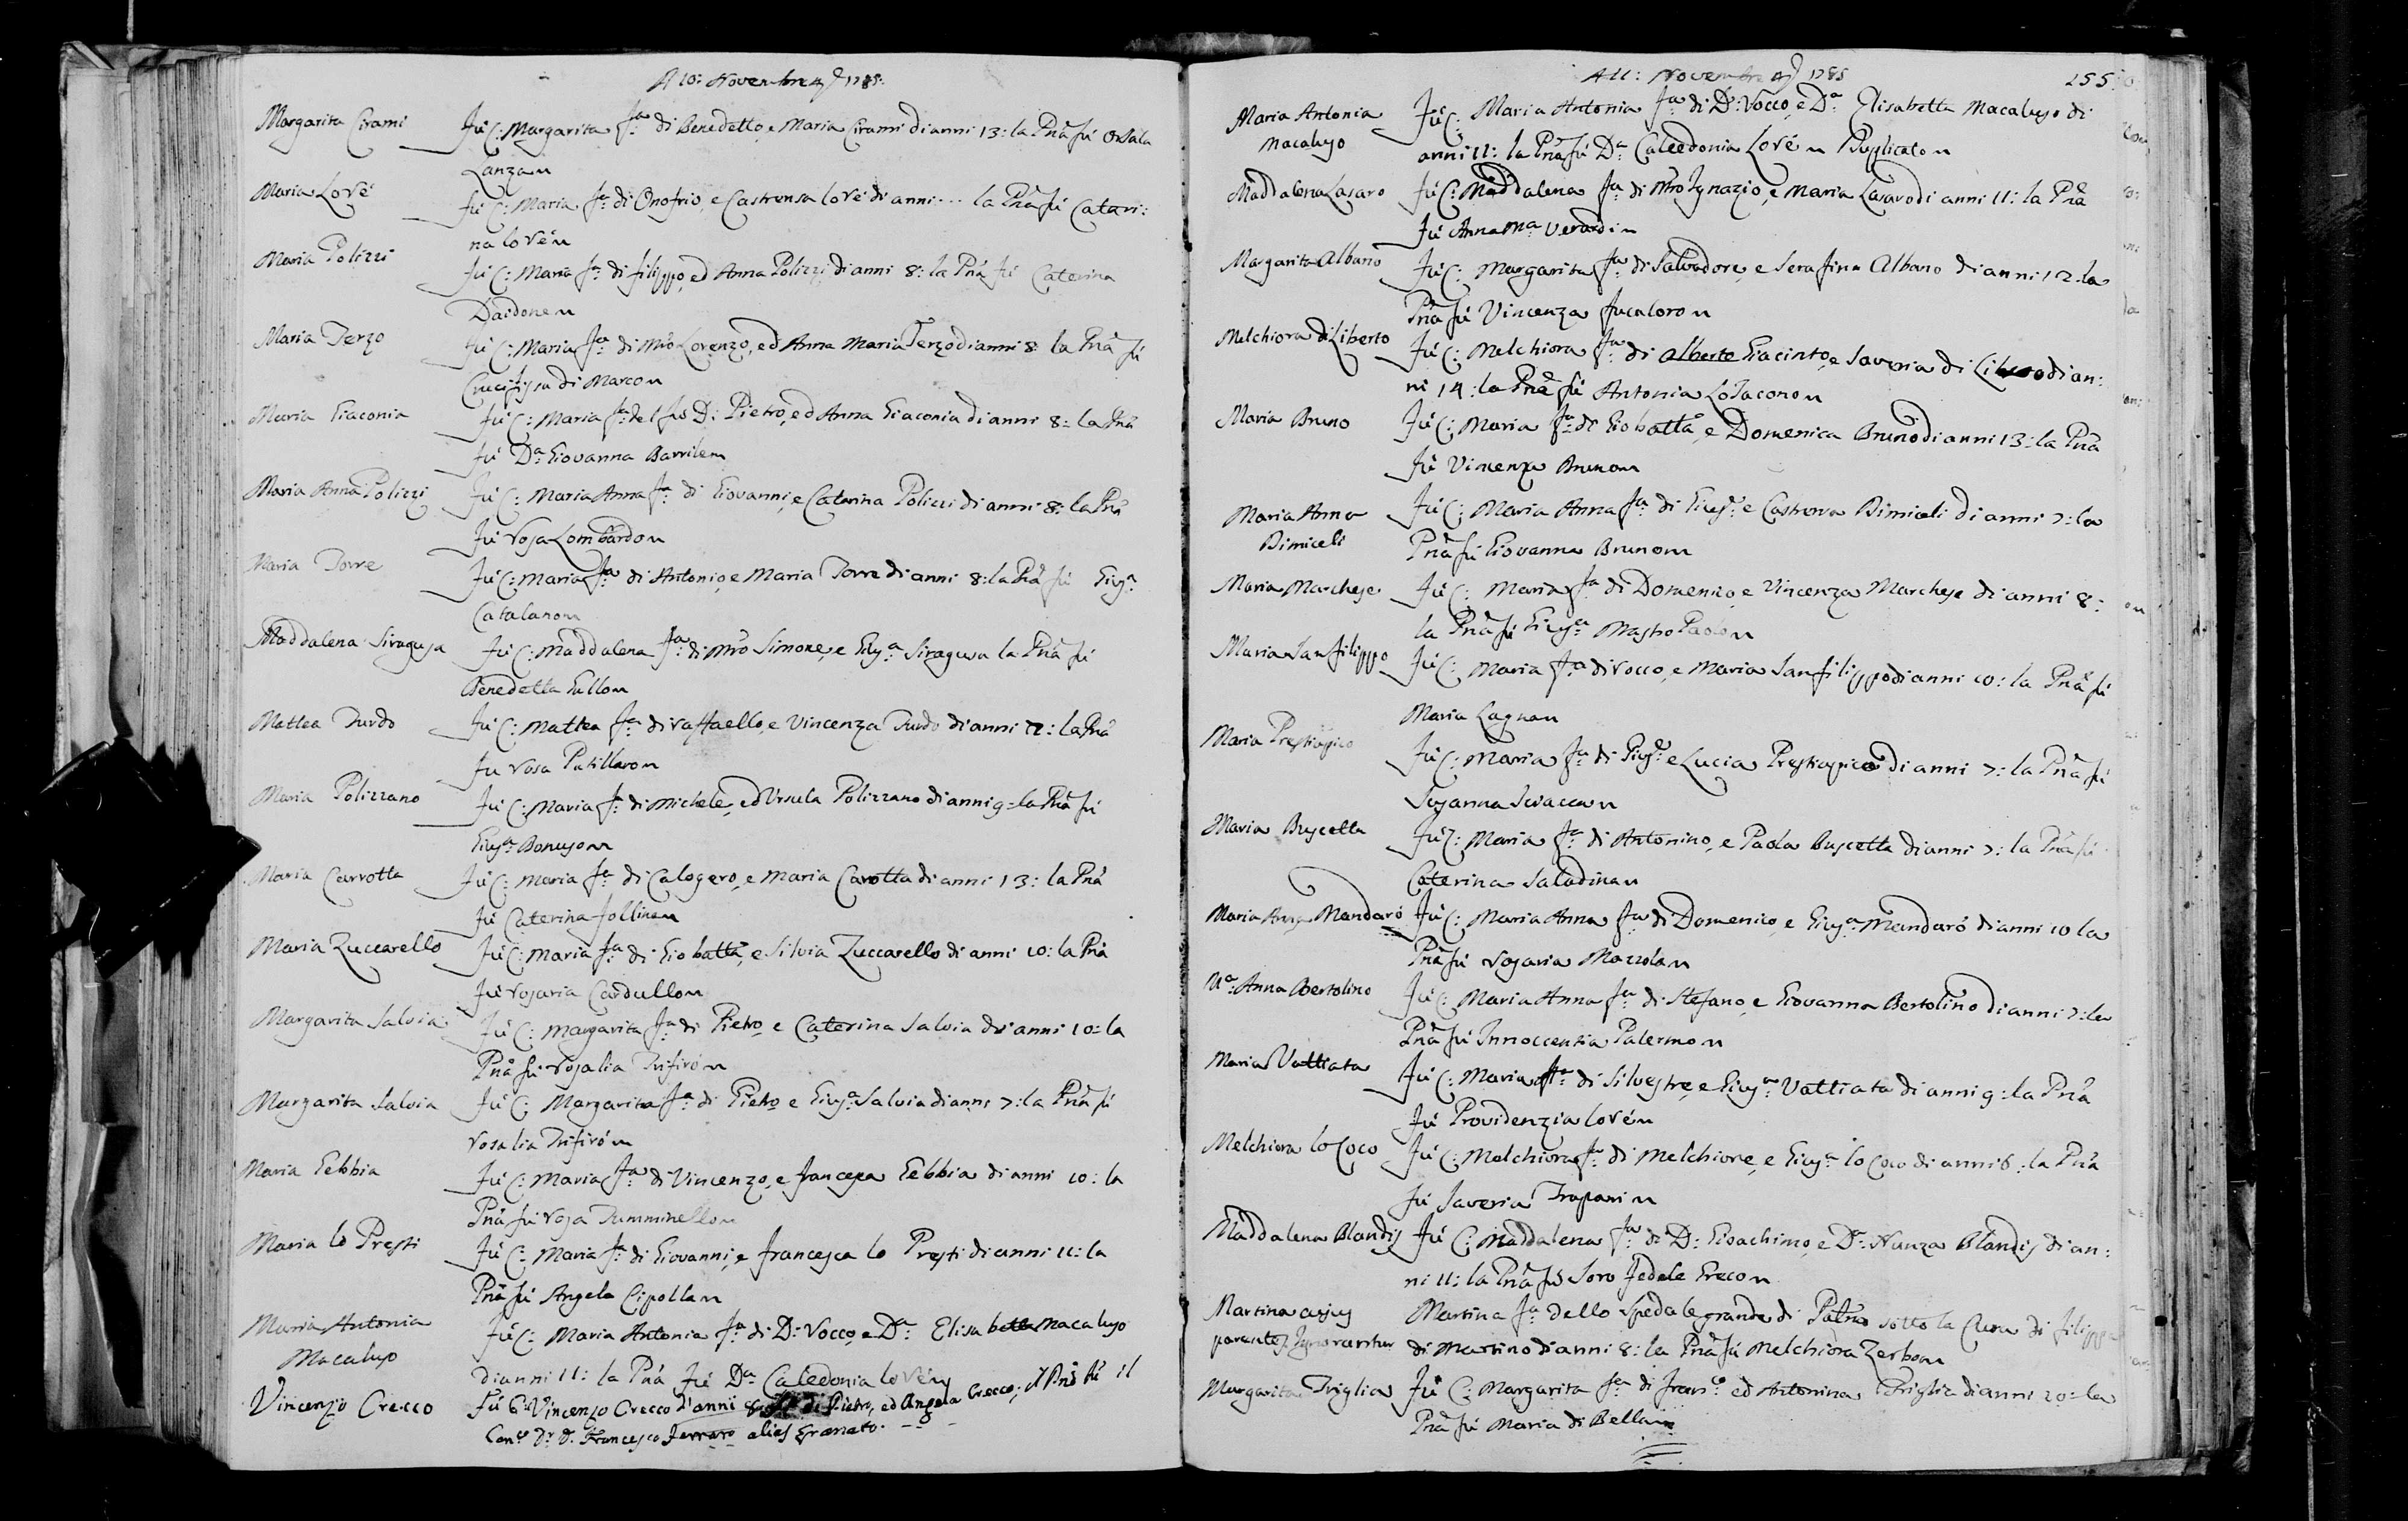 A 10: Novembre 4ª 1785.
Margarita Cirami
Fu C: Margarita fa: di Benedetto, e Maria Cirami di anni 13: la Pna fu Orsala
Lanza
Maria Lové
Fu C: Maria fa: di Onofrio, e Castrensa lové di anni... la Pna fu Catari:
na lové
Maria Polizzi
Fu C: Maria fa: di filippo, ed Anna Polizzi di anni 8: la Pna fu Caterina
Daidone
Maria Terzo
Fu C: Maria fa: di Mro Lorenzo, ed Anna Maria Terzo di anni 8 la Pna fu
Crucifissa di Marco
Maria Giaconia
Fu C: Maria fa: del fu D: Pietro, ed Anna Giaconia di anni 8: la Pna
fu Da: Giovanna Barrile
Maria Anna Polizzi
Fu C: Maria Anna fa: di Giovanni, e Caterina Polizzi di anni 8: la Pna
fu rosa Lombardo
Maria Torre
Fu C: Maria fa: di Antonio, e Maria Torre di anni 8: la Pna fu Giusa
Catalano
Maddalena Siragusa
Fu C: Maddalena fa: di Mro Simone, e Giusa Siragusa la Pna fu
Benedetta Gullo
Mattea Turdo
Fu C: Mattea fa: di raffaello, e Vincenza Turdo di anni la Pna
fu rosa Patillaro
Maria Polizzano
Fu C: Maria fa: di Michele, ed Ursula Polizzano di anni 9: la Pna fu
Giusa Bonuso
Maria Carrotta
Fu C: Maria fa: di Calogero, e Maria Carotta di anni 13: la Pna
fu Caterina Jollina
Maria Zuccarello
Fu C: Maria fa: di Gio batta, e Silvia Zuccarello di anni 10: la Pna
fu rosaria Cardullo
Margarita Salvia
Fu C: Margarita fa: di Pietro, e Caterina Salvia di anni 10: la
Pna fu rosalia Trifiró
Margarita Salvia
Fu C: Margarita fa: di Pietro e Giusa: Salvia di anni 7: la Pna fu
rosalia Trifiró
Maria Gebbia
Fu C: Maria fa: di Vincenzo, e francesca Gebbia di anni 10: la
Pna fu rosa Tumminello
Maria lo Presti
Fu C: Maria fa: di Giovanni, e francesca lo Presti di anni 11: la
Pna fu Angela Cipolla
Maria Antonia
Macaluso
Fu C: Maria Antonia fa: di D: rocco, e Da: Elisabetta Macaluso
di anni 11: la Pna fu Da: Caledonia lové
Vincenzo Crecco
Fu C: Vincenzo Crecco d'anni 8 di Pietro, ed Angela Crecco; il Pno fu il
Canco Dr D. Francesco Ferraro alias Granato.
A 11: Novembre 4ª 1785
255
Maria Antonia
Macaluso
Fu C: Maria Antonia fa: di D: rocco, e Da: Elisabetta Macaluso di
anni 11: la Pna fu Da: Caledonia Lové Duplicato
Maddalena Lasaro
Fu C: Maddalena fa: di Mro Ignazio, e Maria Lasaro di anni 11: la Pna
fu Anna Ma: Verardi
Margarita Albano
Fu C: Margarita fa: di Salvadore, e Serafina Albano di anni 12: la
Pna fu Vincenza fucaloro
Melchiora di Liberto
Fu C: Melchiora fa: di Alberto Giacinto, e Saveria di Liberto di an:
ni 14: la Pna fu Antonia Lo Jacono
Maria Bruno
Fu C: Maria fa: di Gio batta, e Domenica Bruno di anni 13: la Pna
fu Vincenza Bruno
Maria Anna
Dimiceli
Fu C: Maria Anna fa: di Giuse: e Castrenza Dimiceli di anni 7: la
Pna fu Giovanna Bruno
Maria Marchese
Fu C: Maria fa: di Domenico, e Vincenza Marchese di anni 8:
la Pna fu Giusa Mastro Paolo
Maria Sanfilippo
Fu C: Maria fa: di rocco, e Maria Sanfilippo di anni 10: la Pna fu
Maria Lagna
Maria Prestiagico
Fu C: Maria fa: di Giuse: e Lucia Prestiagico di anni 7: la Pna fu
Susanna Sciacca
Maria Buscetta
Fu C: Maria fa: di Antonino, e Paola Buscetta di anni 7: la Pna fu
Caterina Saladina
Maria Anna Mandaró
Fu C: Maria Anna fa: di Domenico, e Giusa: Mandaró di anni 10 la
Pna fu rosaria Mazzola
Ma: Anna Bertolino
Fu C: Maria Anna fa: di Stefano, e Giovanna Bertolino di anni 7: la
Pna fu Innoccenzia Palermo
Maria Vattiata
Fu C: Maria fa: di Silvestre, e Giusa: Vattiata di anni 9: la Pna
fu Providenzia lové
Melchiora lo Coco
Fu C: Melchiora fa: di Melchiore, e Giusa: lo Coco di anni 6: la Pna
fu Saveria Trapani
Maddalena Blandis
Fu C: Maddalena fa: di D: Gioachimo, e Da: Nunza Blandis di an:
ni 11: la Pna fu Soro Fedele Greco
Martina cujus
parentes Ignorantur
Martina fa: dello Spedale grande di Palmo sotto la Cura di filippo
di Martino di anni 8: la Pna fu Melchiora Zerbo
Margarita Triglia
Fu C: Margarita fa: di Franco: ed Antonina Triglia di anni 20: la
Pna fu Maria di Bella